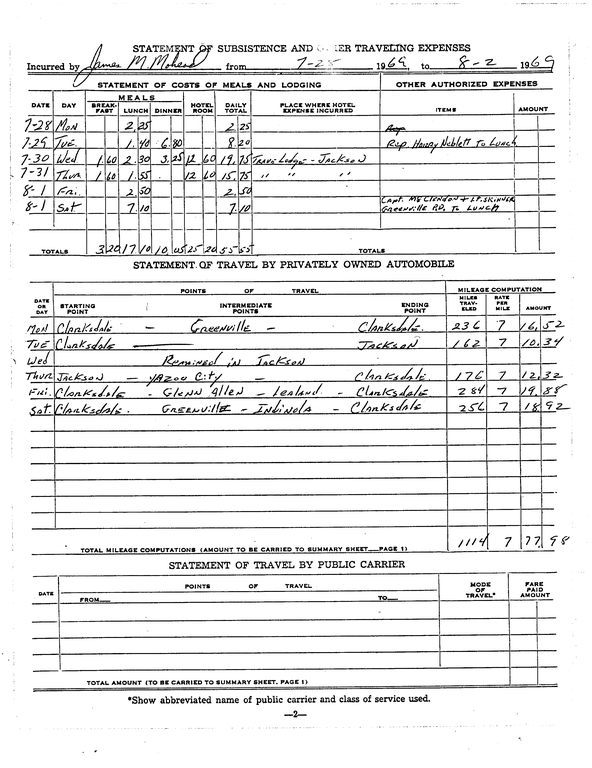 STATEMENT OF SUBSISTENCE AND TRAVELING EXPENSES
Incurred by James M. Mohead from 7-28 1969, to 8-2 1969
STATEMENT OF COSTS OF MEALS AND LODGING OTHER AUTHORIZED EXPENSES
DATE DAY MEALS BREAK-FAST LUNCH DINNER HOTEL ROOM DAILY TOTAL PLACE WHERE HOTEL EXPENSE INCURRED ITEMS AMOUNT
7-28 Mon 2 25 2 25
7-29 Tue 1.40 6.80 8.20 Rep. Henry Neblett To Lunch
7-30 Wed 1 60 2.30 3.25 12 60 19.75 Trave Lodge - Jackson
7-31 Thur 1 60 1.55 12 60 15.75 " " "
8-1 Fri. 2 50 2 50
8-1 Sat 7.10 7.10 Capt. McClendon + Lt. Skinner
Greenville P.D. To Lunch
TOTALS 3 20 17 10 10 05 25 20 55 55 TOTALS
STATEMENT OF TRAVEL BY PRIVATELY OWNED AUTOMOBILE
POINTS OF TRAVEL MILEAGE COMPUTATION
DATE OR DAY STARTING POINT INTERMEDIATE POINTS ENDING POINT MILES TRAV-ELED RATE PER MILE AMOUNT
Mon Clarksdale - Greenville - Clarksdale. 236 7 16.52
Tue Clarksdale Jackson 162 7 10.34
Wed Remained in Jackson
Thur Jackson - Yazoo City - Clarksdale 176 7 12.32
Fri. Clarksdale - Glenn Allen - Lealand - Clarksdale 284 7 19.88
Sat. Clarksdale. Greenville - Indinola - Clarksdale 256 7 18 92
TOTAL MILEAGE COMPUTATIONS (AMOUNT TO BE CARRIED TO SUMMARY SHEET PAGE 1) 1114 7 77 98
STATEMENT OF TRAVEL BY PUBLIC CARRIER
DATE POINTS OF TRAVEL MODE OF TRAVEL* FARE PAID AMOUNT
FROM TO
TOTAL AMOUNT (TO BE CARRIED TO SUMMARY SHEET. PAGE 1)
*Show abbreviated name of public carrier and class of service used.
—2—